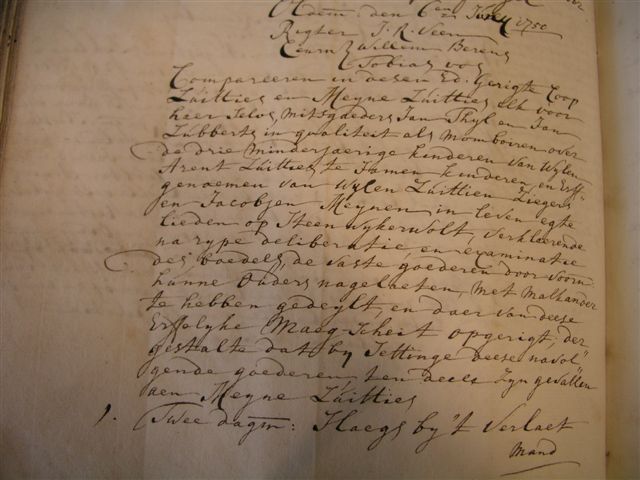 Coram: den 6en July 1750
Rigter J. R. Veen
Ceurn: Willem Berens
Tobias vos
Compareeren in desen Ed. Gerigte Coop
Luitties en Meyne Luitties elk voor
heer selvs, mitsgaeders Jan Thyl en Jan
Lubberts in qualiteit als momboiren over
de drie minderjaerige kinderen van wylen
Arent Luitties, te samen kinderen en Erff"
genaemen van wylen Luittien Ziegers
en Jacobjen Meynen in leven egte
lieden op Steenwykerwolt, verklaerende
na rype deliberatie, en examinatie
des boedels, de vaste goederen door voorn:
hunne Ouders nagelaeten, met malkander
te hebben gedeylt, en daer van deese
Erffelyke Maeg-scheit opgerigt, der
gestalte dat by Settinge deese navol"
gende goederen, ten deele zyn gevallen
aen Meyne Luitties
1. Twee dagm: Slaegs by 't verlaet
mand